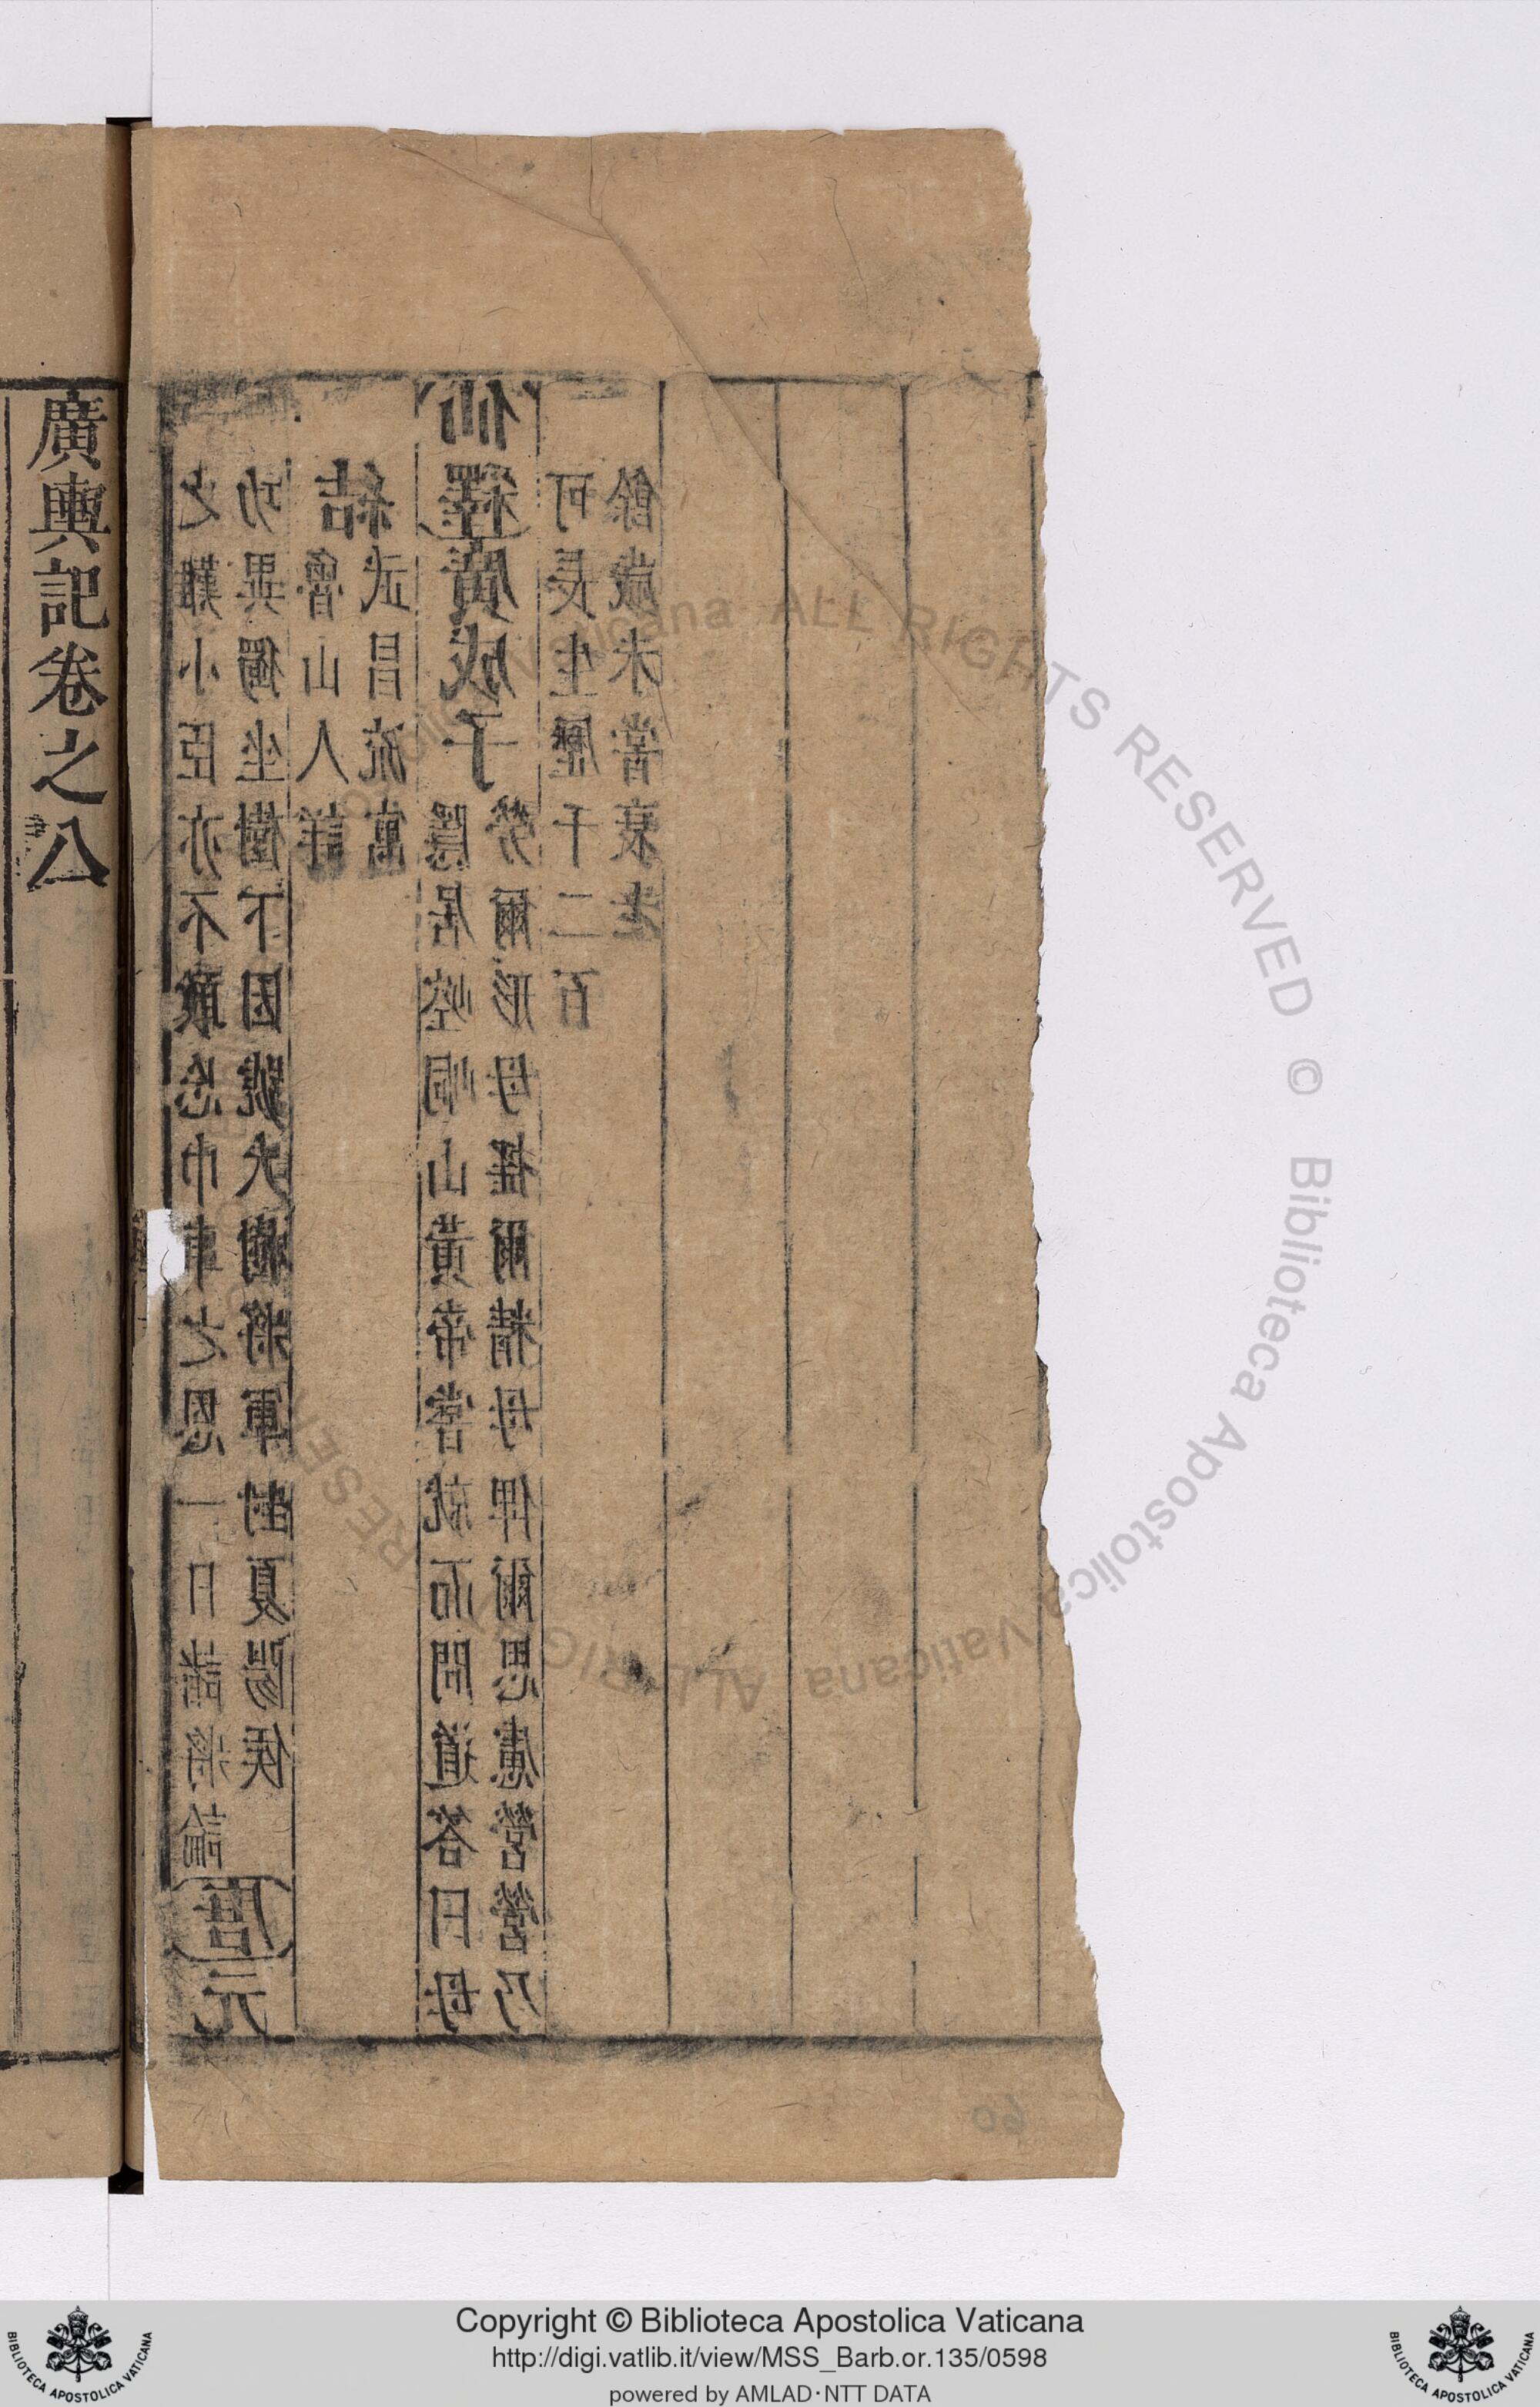 廣輿記卷之八
之難小臣亦不敢忘巾車之恩一日諸將論
功異獨坐樹下因號大樹將軍封夏陽侯
唐元
結
魯山人詳
武昌流寓
仙釋廣成子
隱居崆峒山黃帝嘗就而問道答曰毋
勞爾形毋搖爾精毋俾爾思慮營營乃
可長生歷千二百
餘歲未嘗衰老
60
Biblioteca Apostolica Vaticana ALL RIGHTS RESERVED ©
Copyright © Biblioteca Apostolica Vaticana
http://digi.vatlib.it/view/MSS_Barb.or.135/0598
powered by AMLAD·NTT DATA
BIBLIOTECA APOSTOLICA VATICANA
BIBLIOTECA APOSTOLICA VATICANA